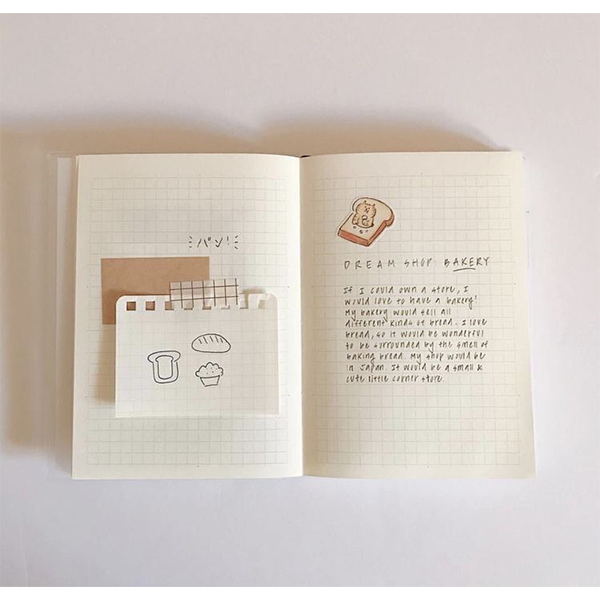 パン!
DREAM SHOP: BAKERY
If I could own a store, I
would love to have a bakery!
My bakery would sell all
different kinds of bread. I love
bread, so it would be wonderful
to be surrounded by the smell of
baking bread. My shop would be
in Japan. It would be a small &
cute little corner store.